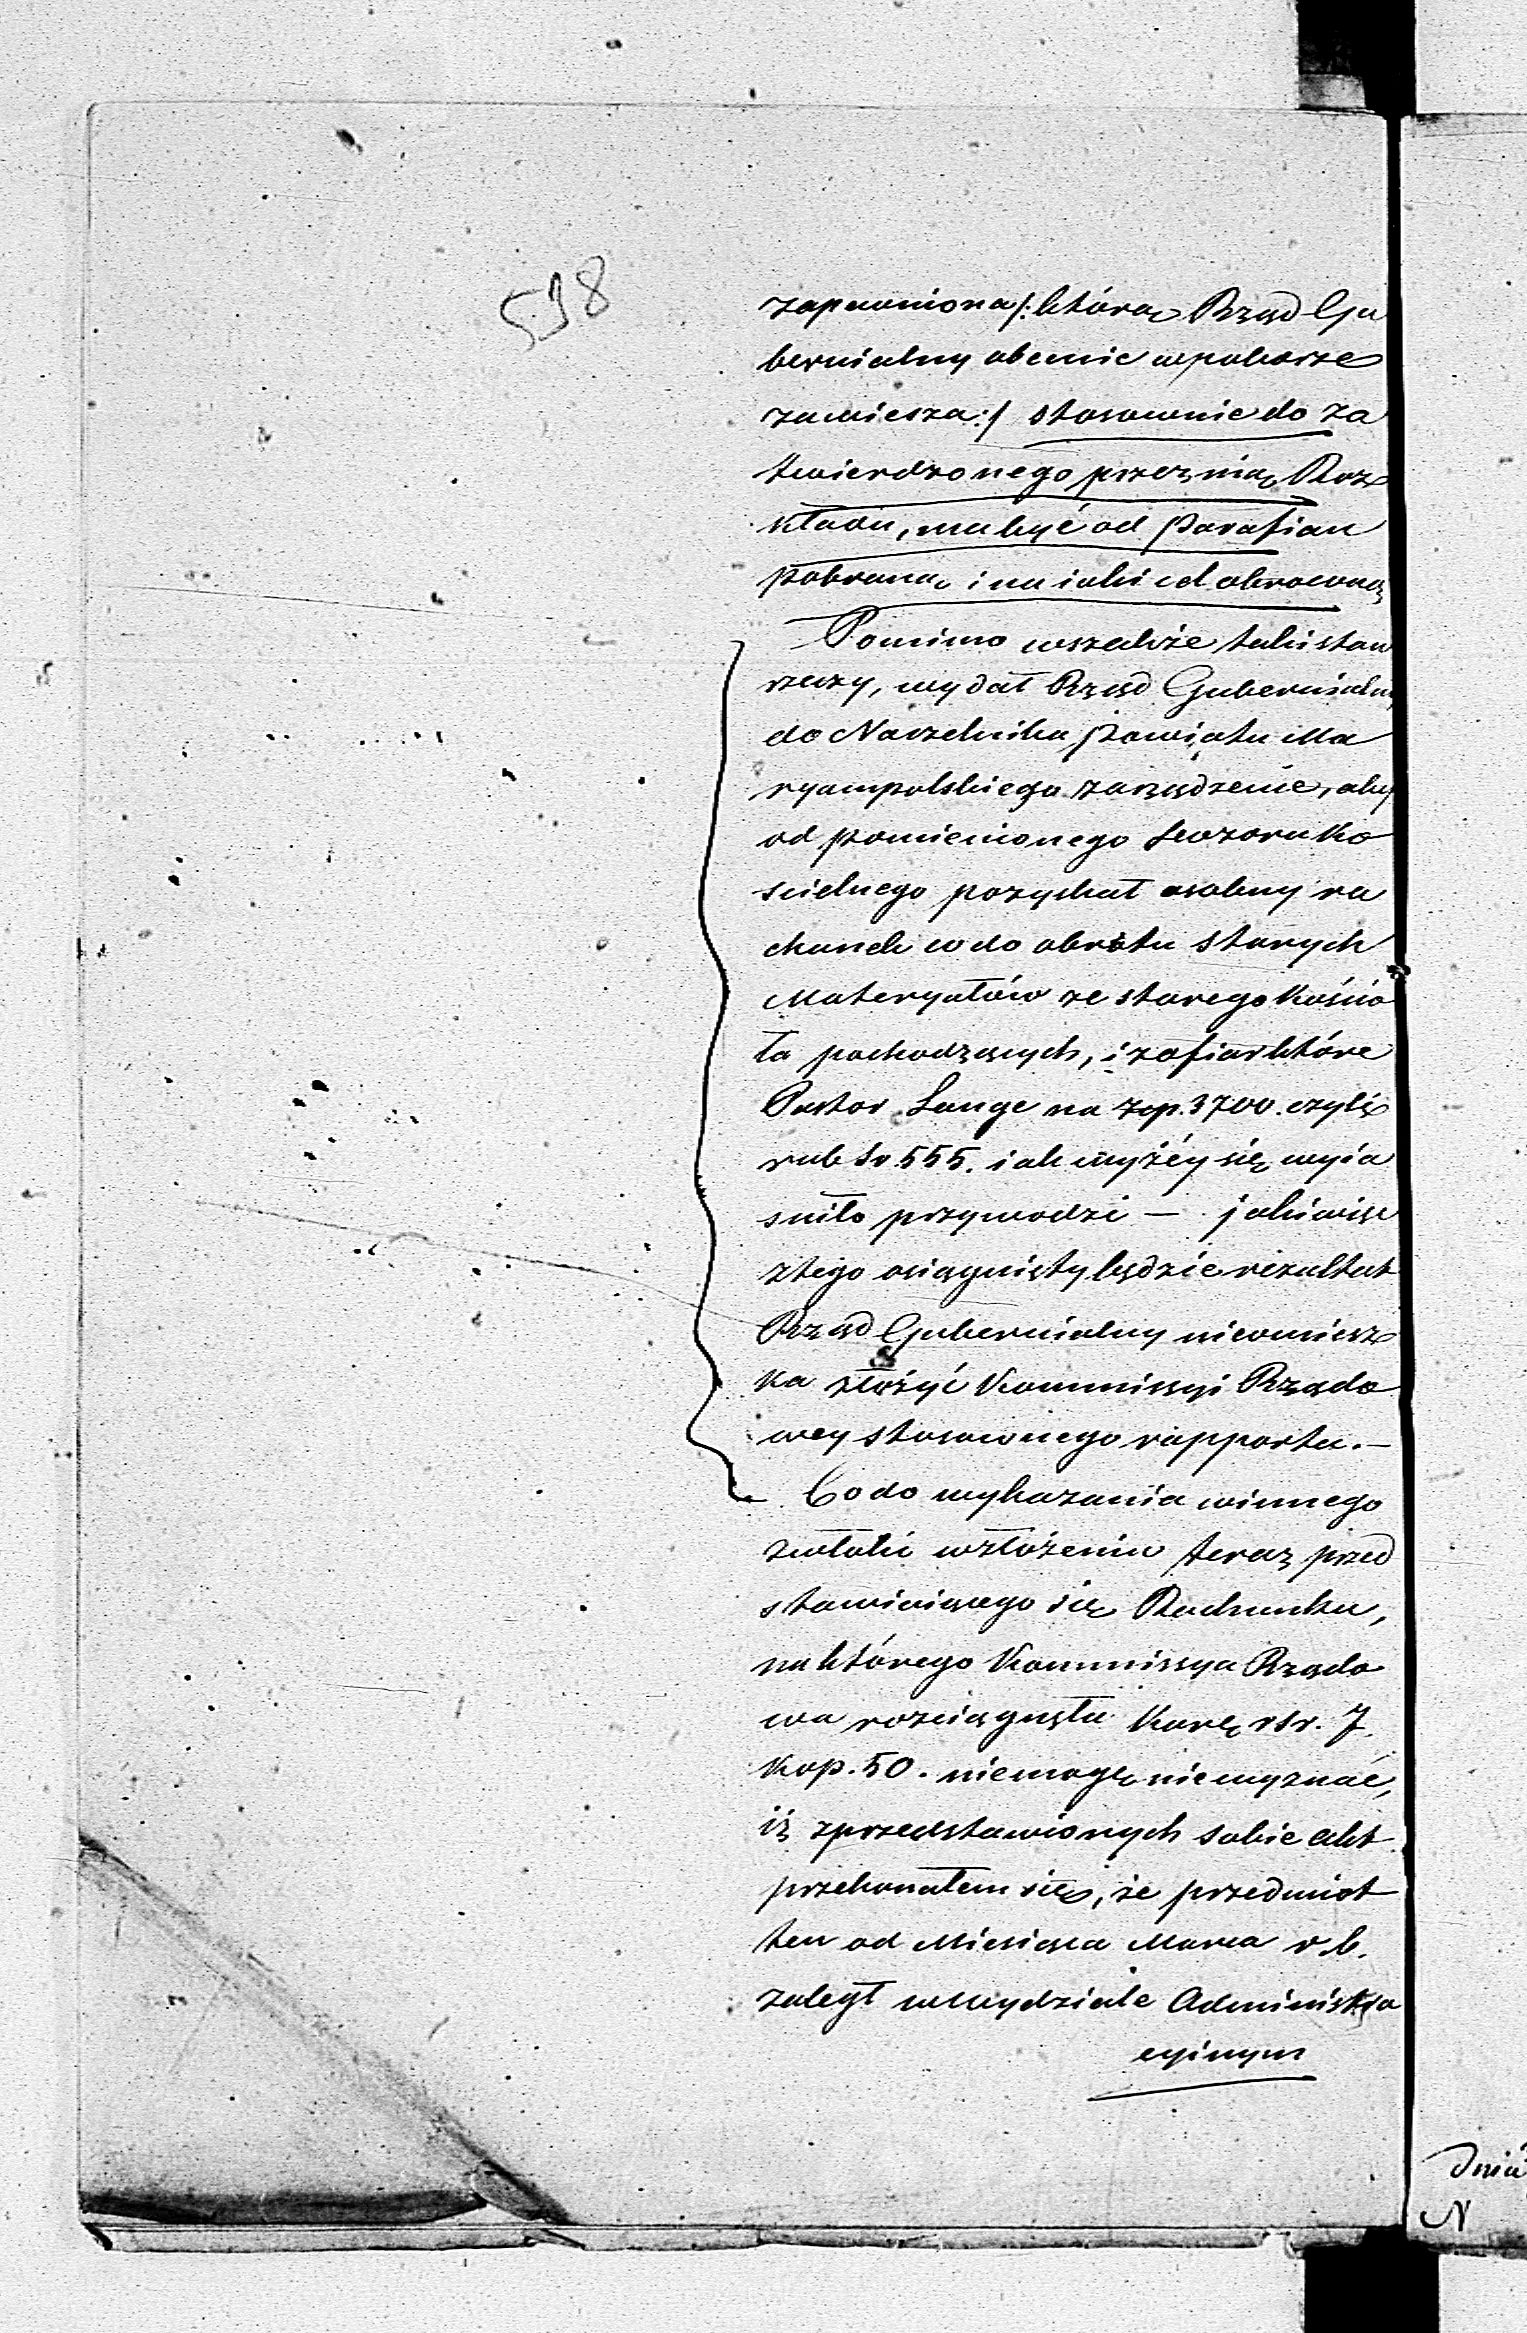 538
zapewniona /: którą Rząd Gu
bernialny obecnie w poborze
zawiesza :/ stosownie do za
twierdzonego przez nią Roz
kładu, ma być od Parafian
pobraną i na iaki cel obroconą
Pomimo wszakże taki stan
rzeczy, wydał Rząd Gubernialny
do Naczelnika Powiatu Ma
ryampolskiego zarządzenie, aby
od pomienionego Dozoru Ko
scielnego pozyskał osobny ra
chunek co do obrotu starych
Materyałów ze starego Kościo
ła pochodzących, i z ofiar które
Pastor Lange na zop. 3700. czyli
rub sr 555. iak wyżéy się wyia
sniło przywodzi — jaki więc
z tego osiągnięty będzie rezultat
Rząd Gubernialny nieomiesz
ka złożyć Kommissyi Rządo
wey stosownego rapportu. —
Co do wykazania winnego
zwłoki w złożeniu teraz przed
stawiaiącego się Rachunku,
na którego Kommissya Rządo
wa rozciągnęła Karę rsr. 7.
kop. 50. niemogę nie wyznać,
iż z przedstawionych sobie akt
przekonałem się, że przedmiot
ten od Miesiąca Marca r. b.
zaległ w wydziale Administra
cyinym
Dnia
N